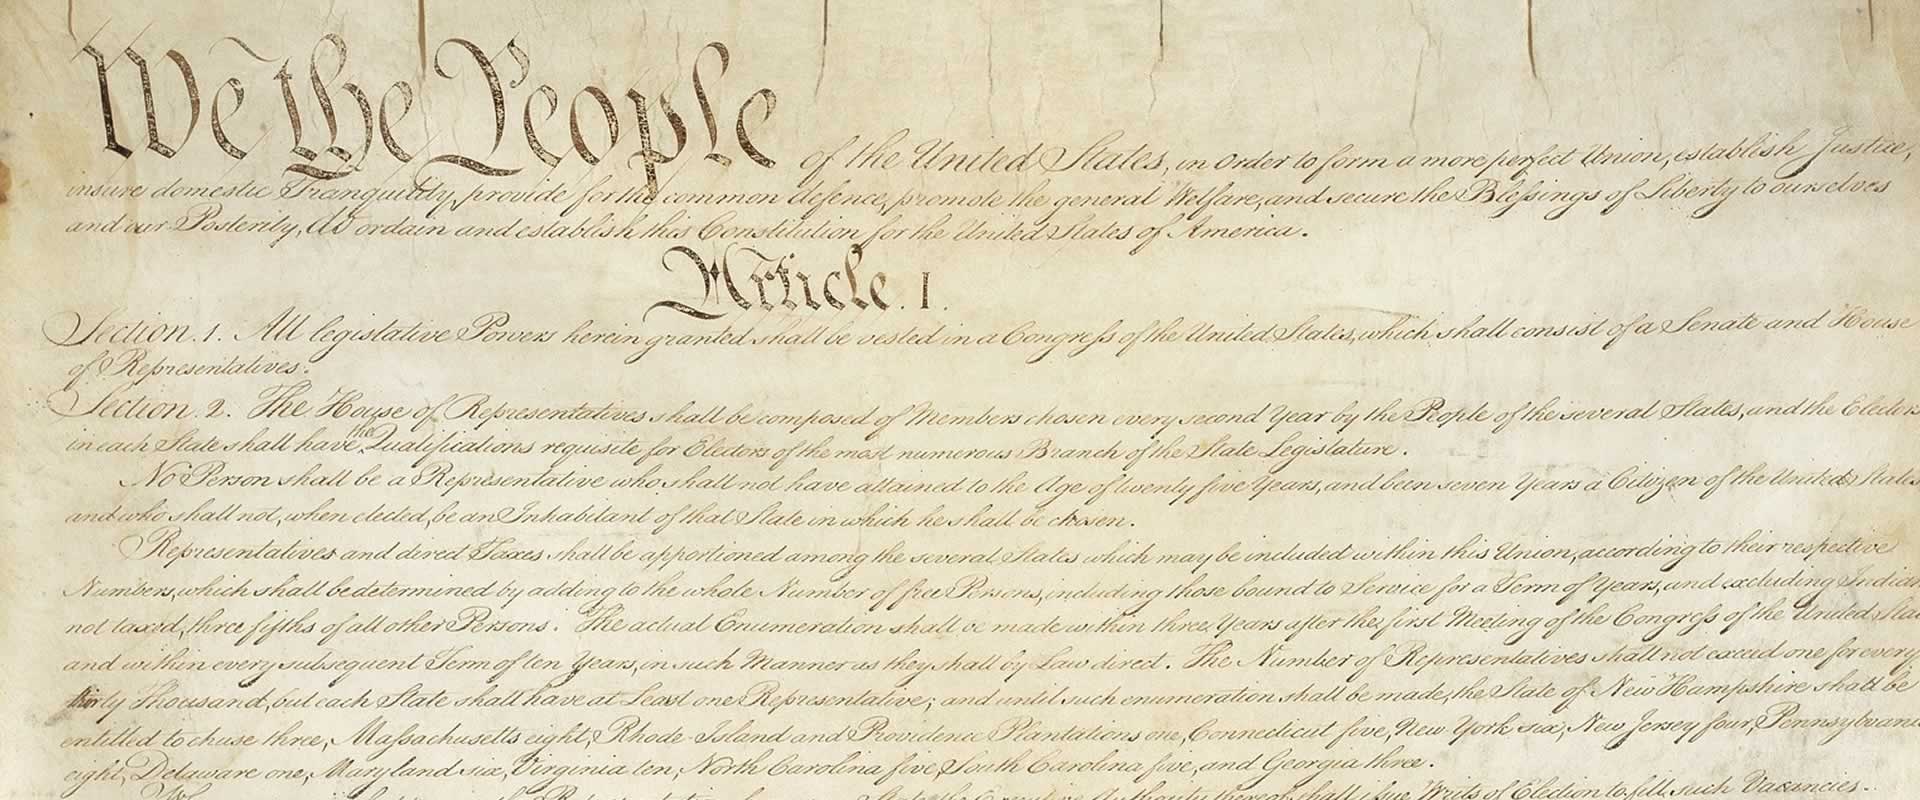 We the People of the United States, in Order to form a more perfect Union, establish Justice,
insure domestic Tranquility, provide for the common defence, promote the general Welfare, and secure the Blessings of Liberty to ourselves
and our Posterity, do ordain and establish this Constitution for the United States of America.
Article. I.
Section. 1. All legislative Powers herein granted shall be vested in a Congress of the United States, which shall consist of a Senate and House
of Representatives.
Section. 2. The House of Representatives shall be composed of Members chosen every second Year by the People of the several States, and the Electors
in each State shall have the Qualifications requisite for Electors of the most numerous Branch of the State Legislature.
No Person shall be a Representative who shall not have attained to the Age of twenty five Years, and been seven Years a Citizen of the United States,
and who shall not, when elected, be an Inhabitant of that State in which he shall be chosen.
Representatives and direct Taxes shall be apportioned among the several States which may be included within this Union, according to their respective
Numbers, which shall be determined by adding to the whole Number of free Persons, including those bound to Service for a Term of Years, and excluding Indians
not taxed, three fifths of all other Persons. The actual Enumeration shall be made within three Years after the first Meeting of the Congress of the United Sta
and within every subsequent Term of ten Years, in such Manner as they shall by Law direct. The Number of Representatives shall not exceed one for every
thirty Thousand, but each State shall have at Least one Representative; and until such enumeration shall be made, the State of New Hampshire shall be
entitled to chuse three, Massachusetts eight, Rhode-Island and Providence Plantations one, Connecticut five, New York six, New Jersey four, Pennsylvani
eight, Delaware one, Maryland six, Virginia ten, North Carolina five, South Carolina five, and Georgia three.
the Executive Authority thereof shall issue Writs of Election to fill such Vacancies.